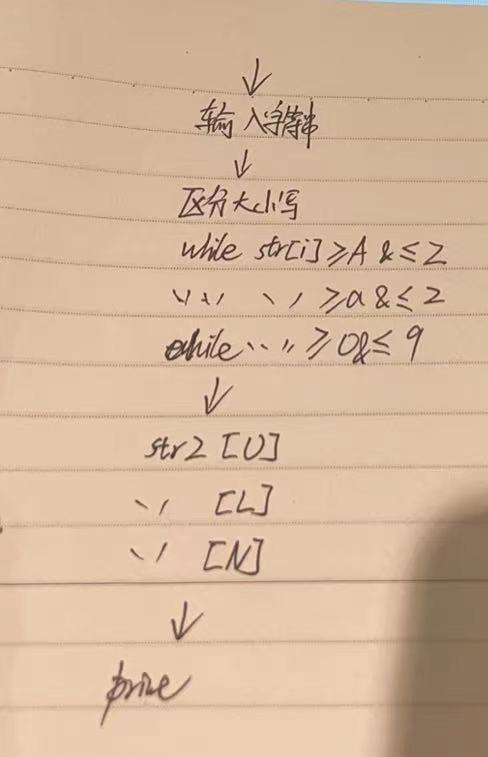 ↓
输入字符串
↓
区分大小写
while str[i] ≥A & ≤Z
〃 〃 ≥a & ≤z
while 〃 ≥0& ≤ 9
↓
str2 [U]
〃 [L]
〃 [N]
↓